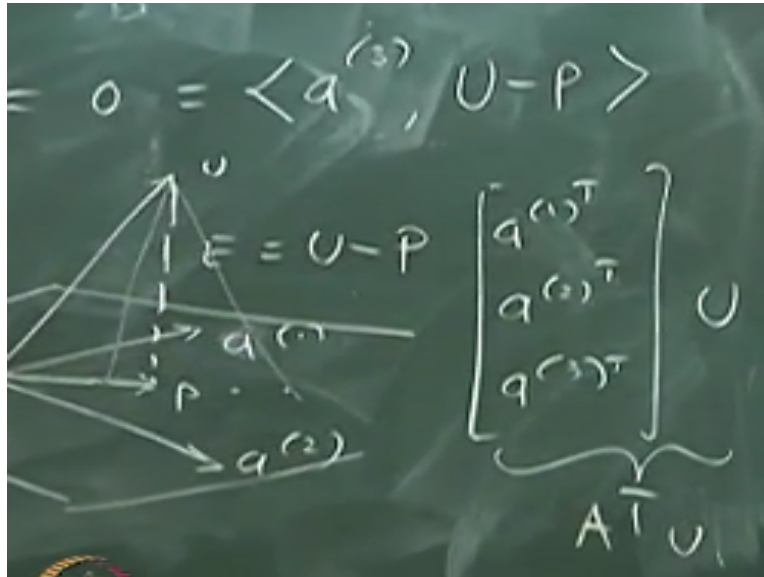 = 0 = < a^(3), U - P >
U
E = U - P
a^(1)
P
a^(2)
[ a^(1)T
a^(2)T
a^(3)T ] U
A^T U